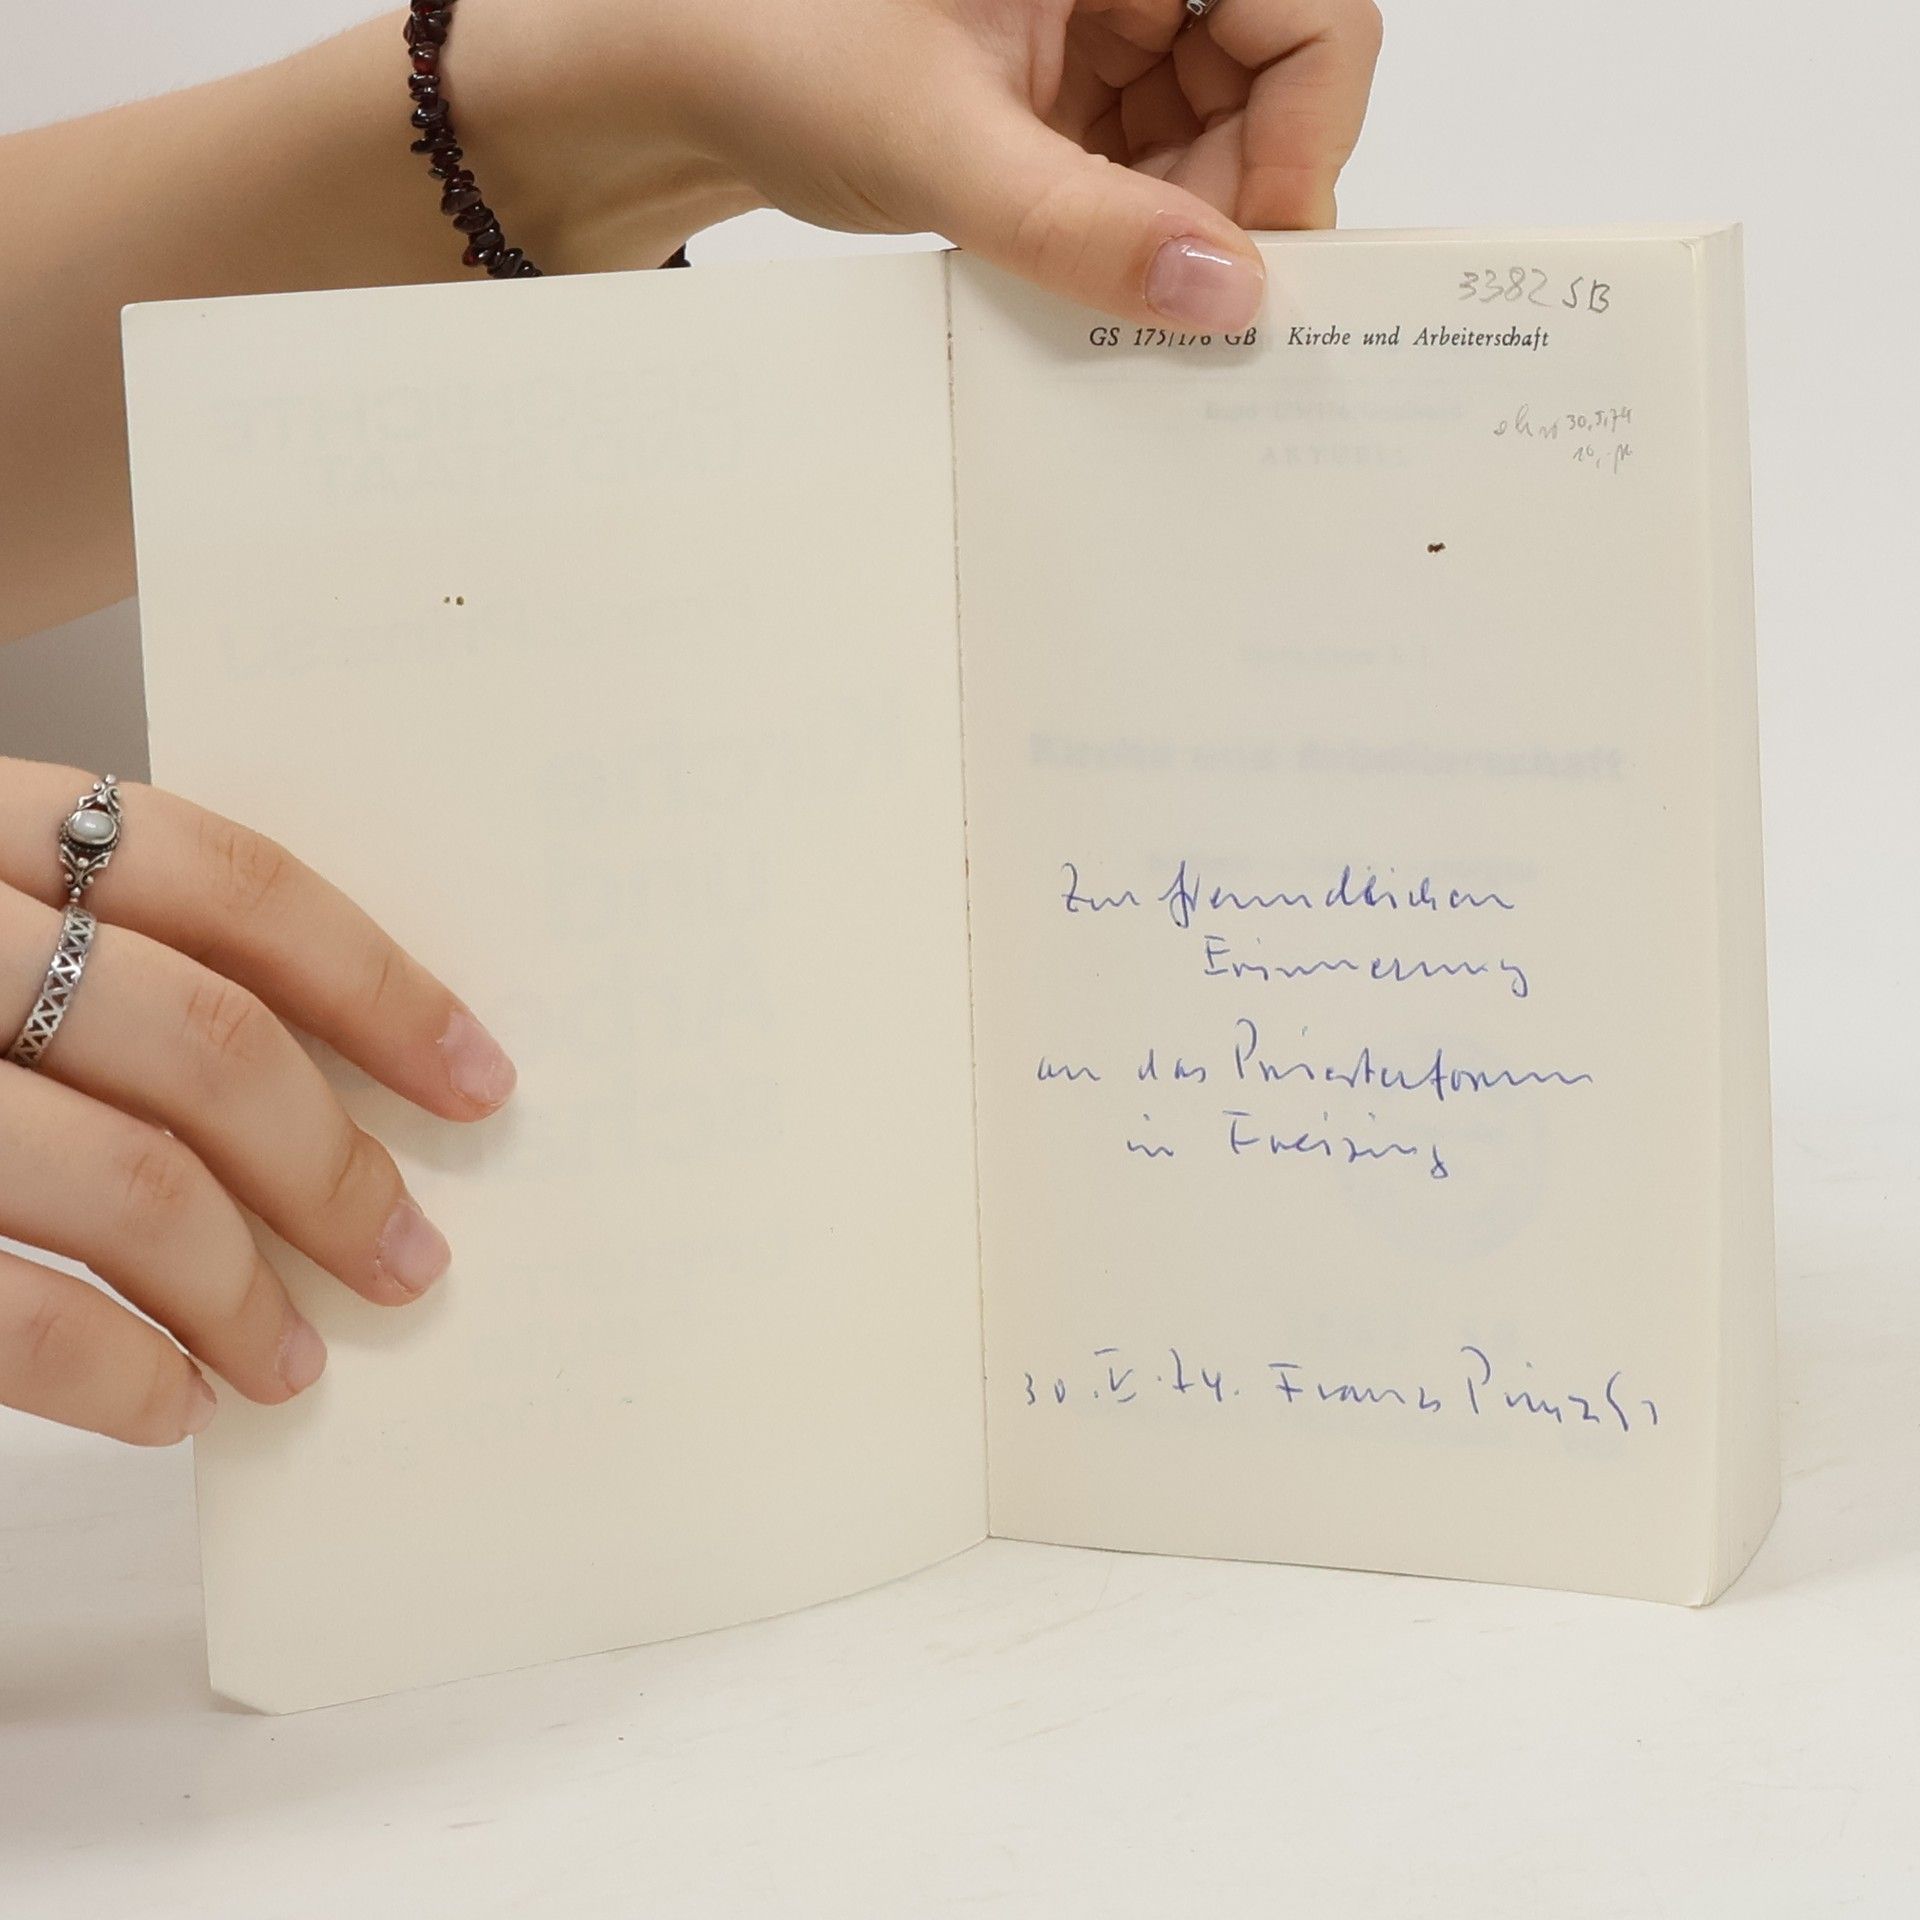 3382 SB
GS 175/176 GB Kirche und Arbeiterschaft
30.5.74
10,-
Zur freundlichen
Erinnerung
an das Priesterforum
in Freising
30.V.74. Franz Prinz SJ